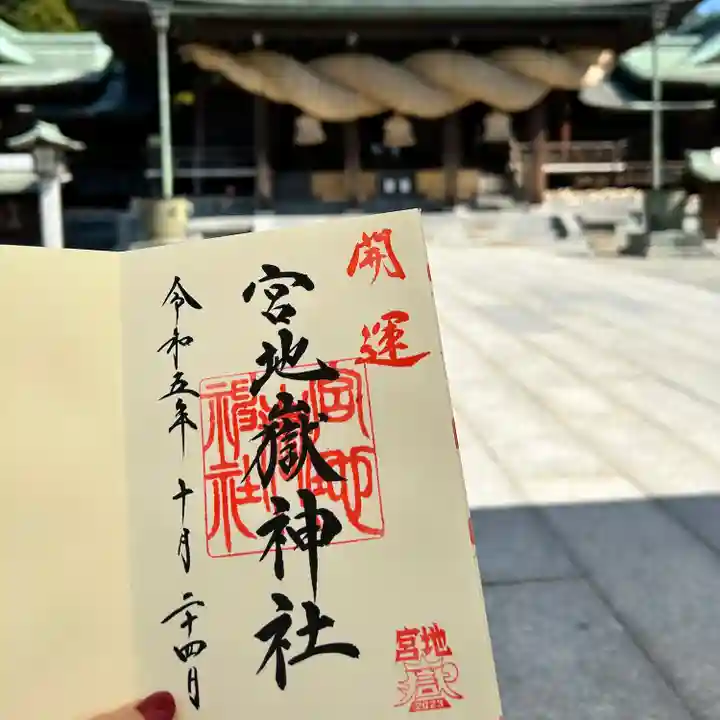 開運
宮地嶽神社
宮地嶽神社
令和五年 十月 二十四日
宮地
嶽
2023